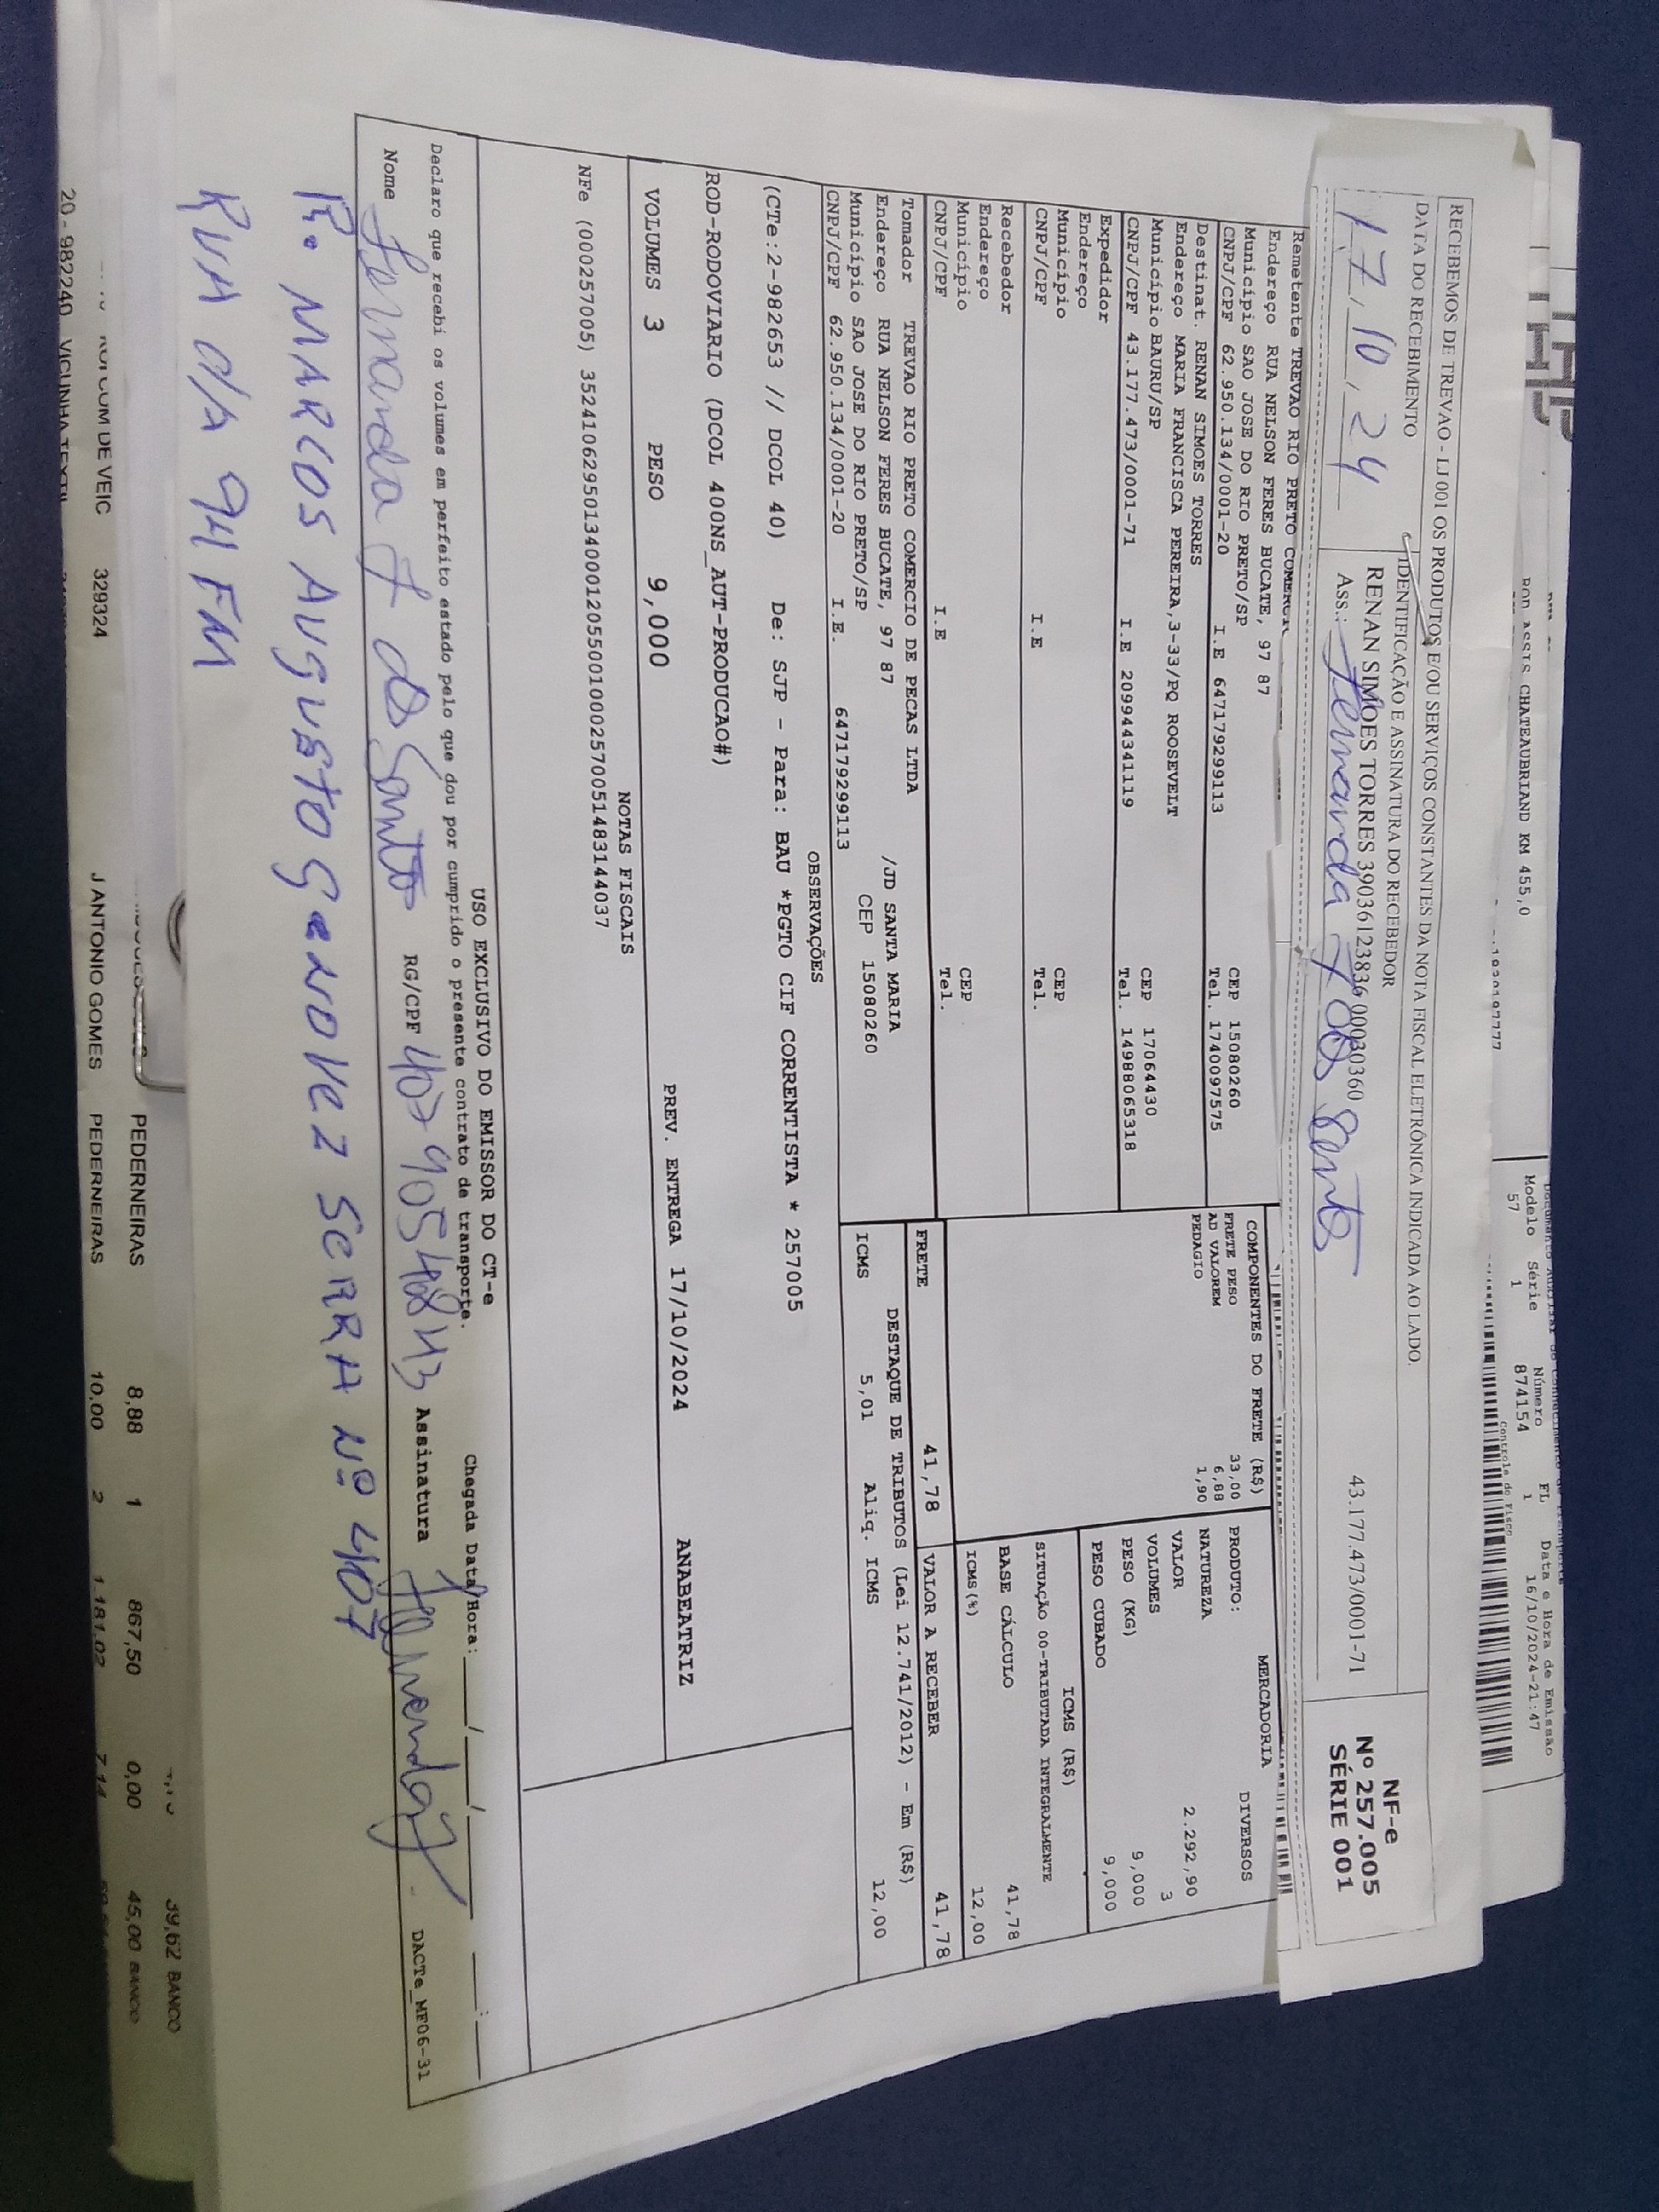 ROD ASSIS CHATEAUBRIAND KM 455,0
Modelo Série Número FL Data e Hora de Emissão
57 1 874154 1 16/10/2024-21:47
Controle do Fisco
RECEBEMOS DE TREVAO - LJ 001 OS PRODUTOS E/OU SERVIÇOS CONSTANTES DA NOTA FISCAL ELETRÔNICA INDICADA AO LADO.
DATA DO RECEBIMENTO
IDENTIFICAÇÃO E ASSINATURA DO RECEBEDOR
17,10,24
RENAN SIMOES TORRES 39036123836 000030360 43.177.473/0001-71
Ass.: Fernanda F dos Santos
NF-e
Nº 257.005
SÉRIE 001
Remetente TREVAO RIO PRETO
Endereço RUA NELSON FERES BUCATE, 97 87
Município SAO JOSE DO RIO PRETO/SP CEP 15080260
CNPJ/CPF 62.950.134/0001-20 I.E 647179299113 Tel. 1740097575
Destinat. RENAN SIMOES TORRES
Endereço MARIA FRANCISCA PEREIRA,3-33/PQ ROOSEVELT
Município BAURU/SP CEP 17064430
CNPJ/CPF 43.177.473/0001-71 I.E 209944341119 Tel. 14988065318
Expedidor
Endereço
Município CEP
CNPJ/CPF I.E Tel.
Recebedor
Endereço
Município CEP
CNPJ/CPF I.E Tel.
Tomador TREVAO RIO PRETO COMERCIO DE PECAS LTDA
Endereço RUA NELSON FERES BUCATE, 97 87 /JD SANTA MARIA
Município SAO JOSE DO RIO PRETO/SP CEP 15080260
CNPJ/CPF 62.950.134/0001-20 I.E. 647179299113
COMPONENTES DO FRETE (R$)
FRETE PESO 33,00
AD VALOREM 6,88
PEDAGIO 1,90
MERCADORIA
PRODUTO: DIVERSOS
NATUREZA
VALOR 2.292,90
VOLUMES 3
PESO (KG) 9,000
PESO CUBADO 9,000
ICMS (R$)
SITUAÇÃO 00-TRIBUTADA INTEGRALMENTE
BASE CÁLCULO 41,78
ICMS(%) 12,00
FRETE 41,78 VALOR A RECEBER 41,78
DESTAQUE DE TRIBUTOS (Lei 12.741/2012) - Em (R$)
ICMS 5,01 Aliq. ICMS 12,00
OBSERVAÇÕES
(CTe:2-982653 // DCOL 40) De: SJP - Para: BAU *PGTO CIF CORRENTISTA * 257005
ROD-RODOVIARIO (DCOL 400NS_AUT-PRODUCAO#)
VOLUMES 3 PESO 9,000 PREV. ENTREGA 17/10/2024 ANABEATRIZ
NOTAS FISCAIS
NFe (000257005) 35241062950134000120550010002570051483144037
USO EXCLUSIVO DO EMISSOR DO CT-e
Declaro que recebi os volumes em perfeito estado pelo que dou por cumprido o presente contrato de transporte.
Chegada Data/Hora: ___/___/___ ___:___
Nome Fernanda F dos Santos RG/CPF 40790548843 Assinatura Fernanda
DACTe_MF06-31
R. MARCOS AUGUSTO GENOVEZ SERRA Nº 407
RUA d/A 94 FM
39,62 BANCO
PEDERNEIRAS 8,88 1 867,50 0,00 45,00 BANCO
COM DE VEIC 329324 J ANTONIO GOMES PEDERNEIRAS 10,00 2 1.181,02 7,14
20 - 982240 VICUNHA TEXTIL